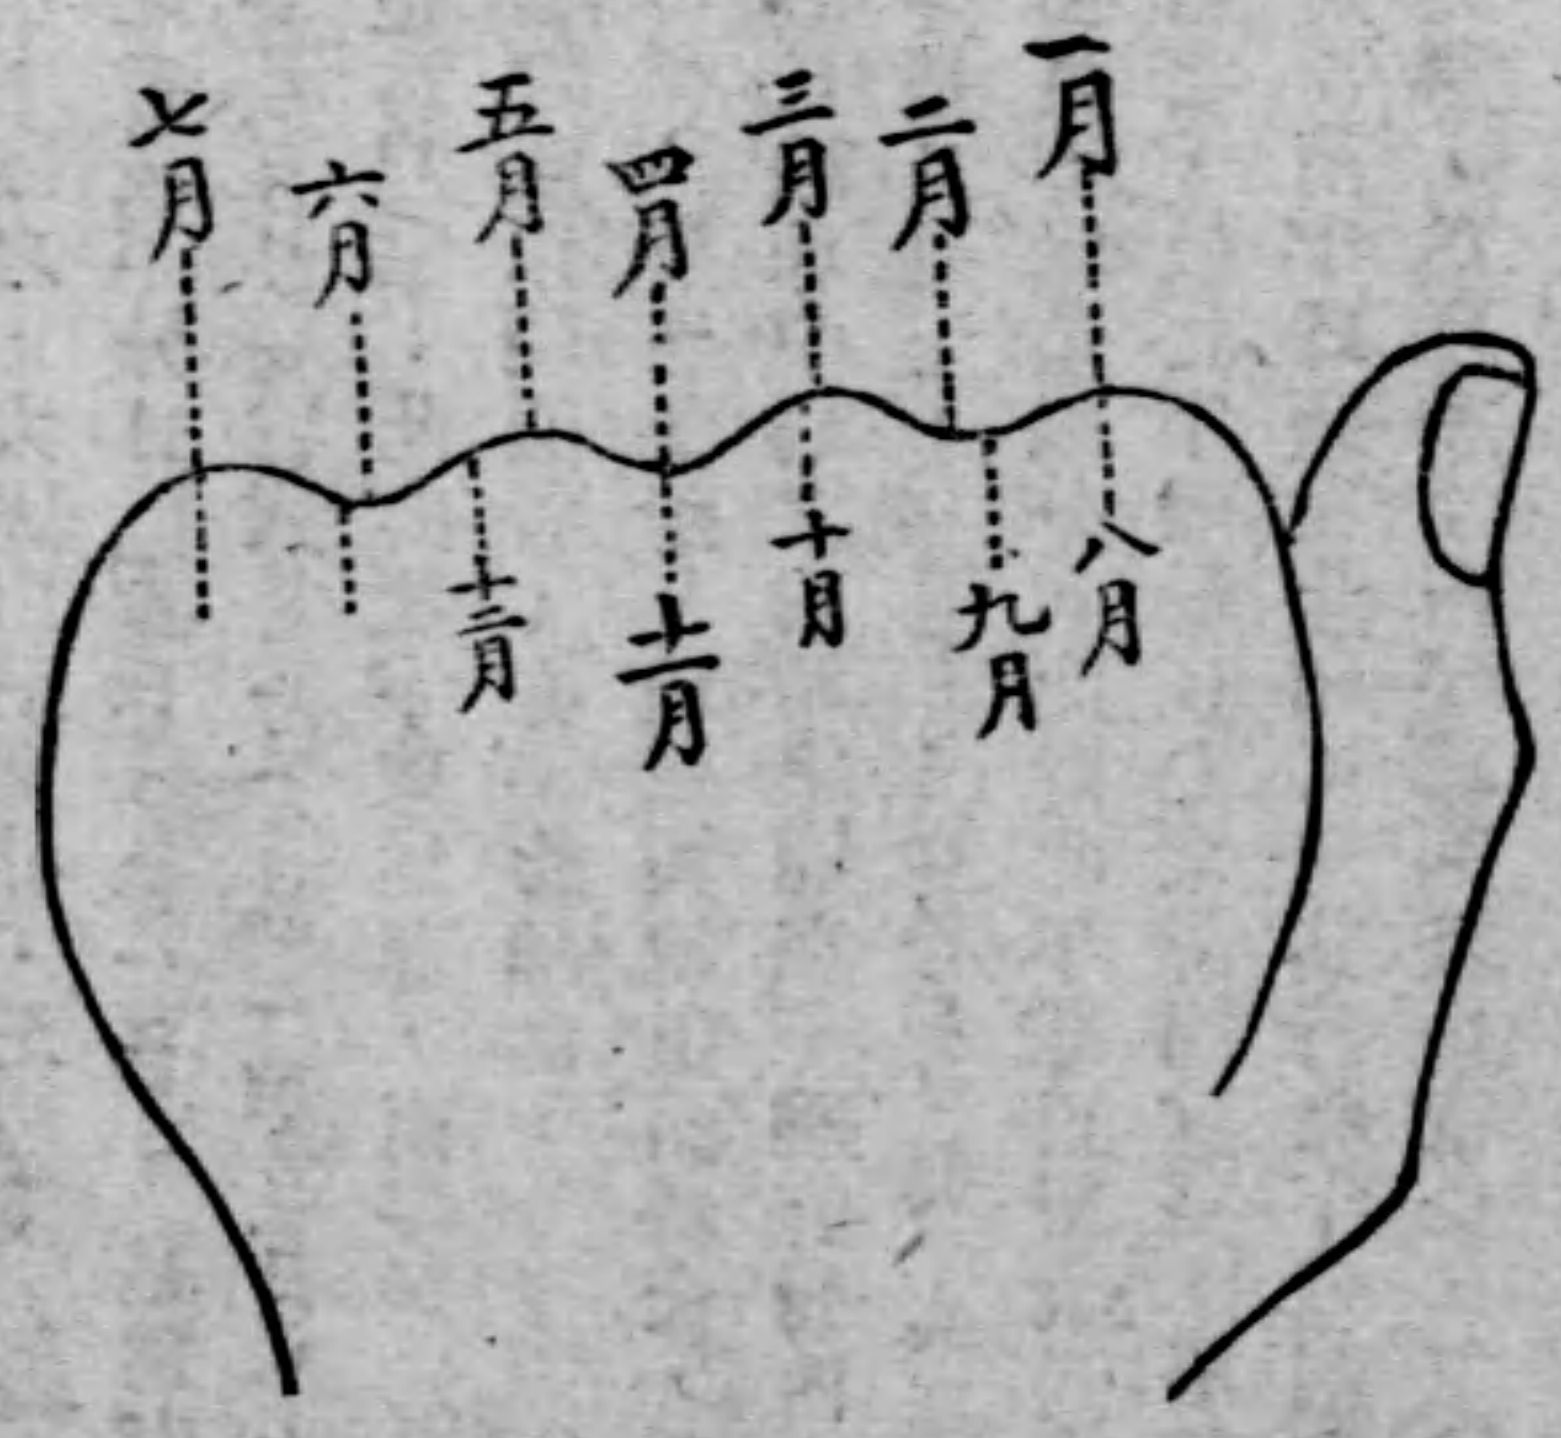 一月
二月
三月
四月
五月
六月
七月
八月
九月
十月
十一月
十二月